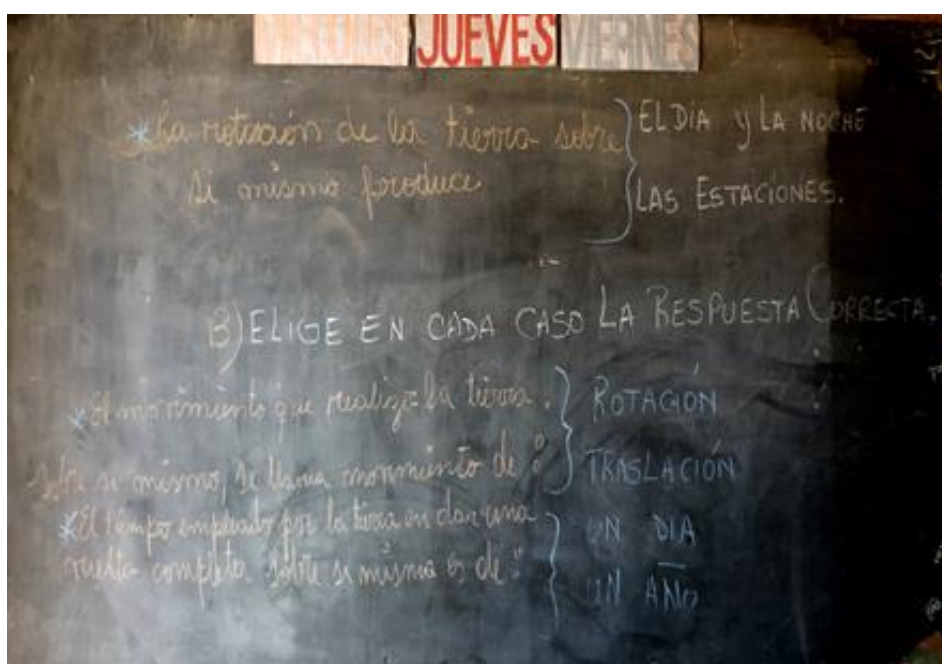 JUEVES VIERNES
*La rotación de la tierra sobre
si mismo produce
EL DIA Y LA NOCHE
LAS ESTACIONES.
B) ELIGE EN CADA CASO LA RESPUESTA CORRECTA.
*El movimiento que realiza la tierra
sobre si mismo, se llama movimiento de:
ROTACIÓN
TRASLACIÓN
*El tiempo empleado por la tierra en dar una
vuelta completa sobre si misma es de:
UN DIA
UN AÑO